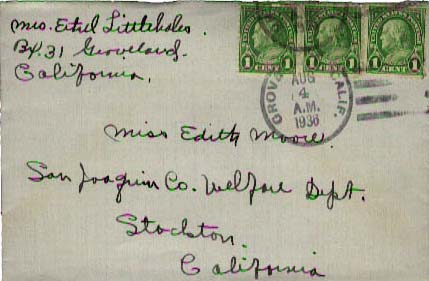 Mrs. Ethel Littlehales
Bx. 31 Groveland.
California.
1 CENT 1
1 CENT 1
1 CENT 1
GROV CALIF.
AUG
4
A.M.
1936
Miss Edith Moore.
San Joaquin Co. Welfare Dept.
Stockton.
California